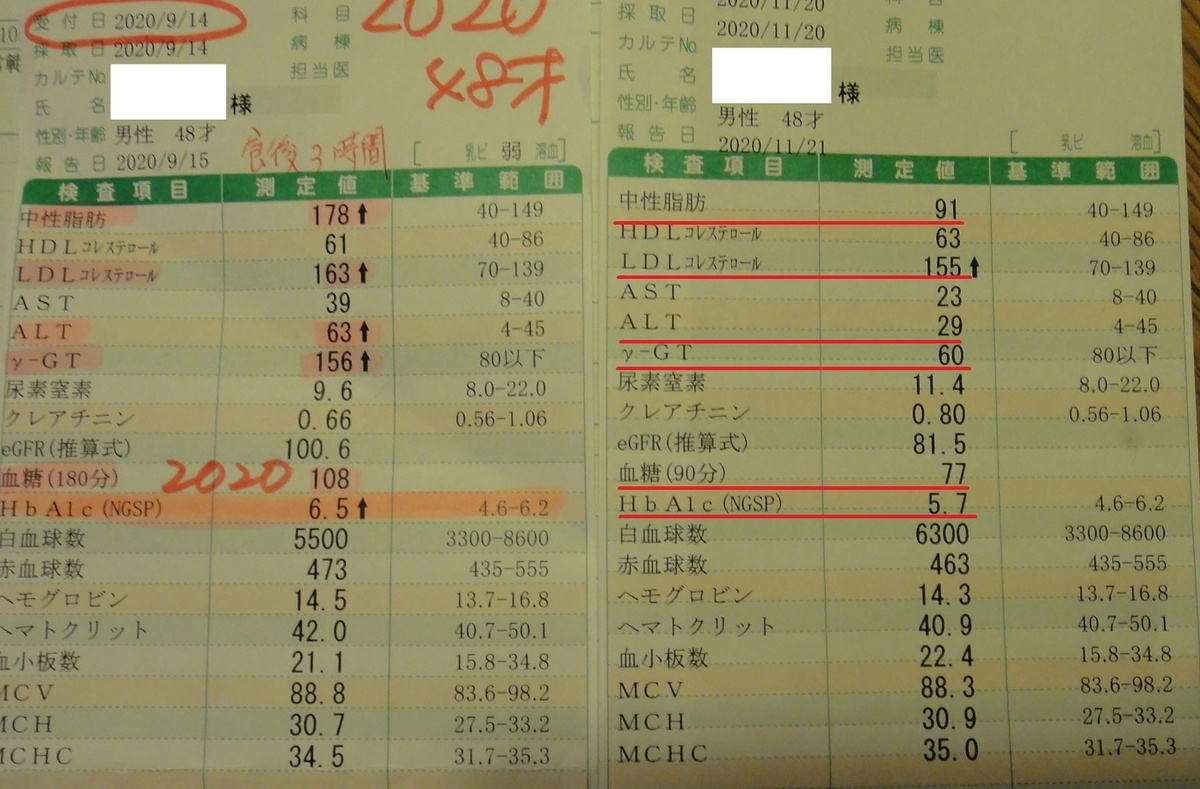 10
受付日 2020/9/14 科目 2020
採取日 2020/9/14 病棟
カルテNo. 担当医 48才
氏名 様
性別・年齢 男性 48才
報告日 2020/9/15 食後3時間 [ 乳ビ 弱 溶血]
検査項目 測定値 基準範囲
中性脂肪 178↑ 40-149
HDLコレステロール 61 40-86
LDLコレステロール 163↑ 70-139
AST 39 8-40
ALT 63↑ 4-45
γ-GT 156↑ 80以下
尿素窒素 9.6 8.0-22.0
クレアチニン 0.66 0.56-1.06
eGFR(推算式) 100.6
血糖(180分) 2020 108
HbA1c(NGSP) 6.5↑ 4.6-6.2
白血球数 5500 3300-8600
赤血球数 473 435-555
ヘモグロビン 14.5 13.7-16.8
ヘマトクリット 42.0 40.7-50.1
血小板数 21.1 15.8-34.8
MCV 88.8 83.6-98.2
MCH 30.7 27.5-33.2
MCHC 34.5 31.7-35.3
2020/11/20 科目
採取日 2020/11/20 病棟
カルテNo. 担当医
氏名 様
性別・年齢 男性 48才
報告日 2020/11/21 [ 乳ビ 溶血]
検査項目 測定値 基準範囲
中性脂肪 91 40-149
HDLコレステロール 63 40-86
LDLコレステロール 155↑ 70-139
AST 23 8-40
ALT 29 4-45
γ-GT 60 80以下
尿素窒素 11.4 8.0-22.0
クレアチニン 0.80 0.56-1.06
eGFR(推算式) 81.5
血糖(90分) 77
HbA1c(NGSP) 5.7 4.6-6.2
白血球数 6300 3300-8600
赤血球数 463 435-555
ヘモグロビン 14.3 13.7-16.8
ヘマトクリット 40.9 40.7-50.1
血小板数 22.4 15.8-34.8
MCV 88.3 83.6-98.2
MCH 30.9 27.5-33.2
MCHC 35.0 31.7-35.3